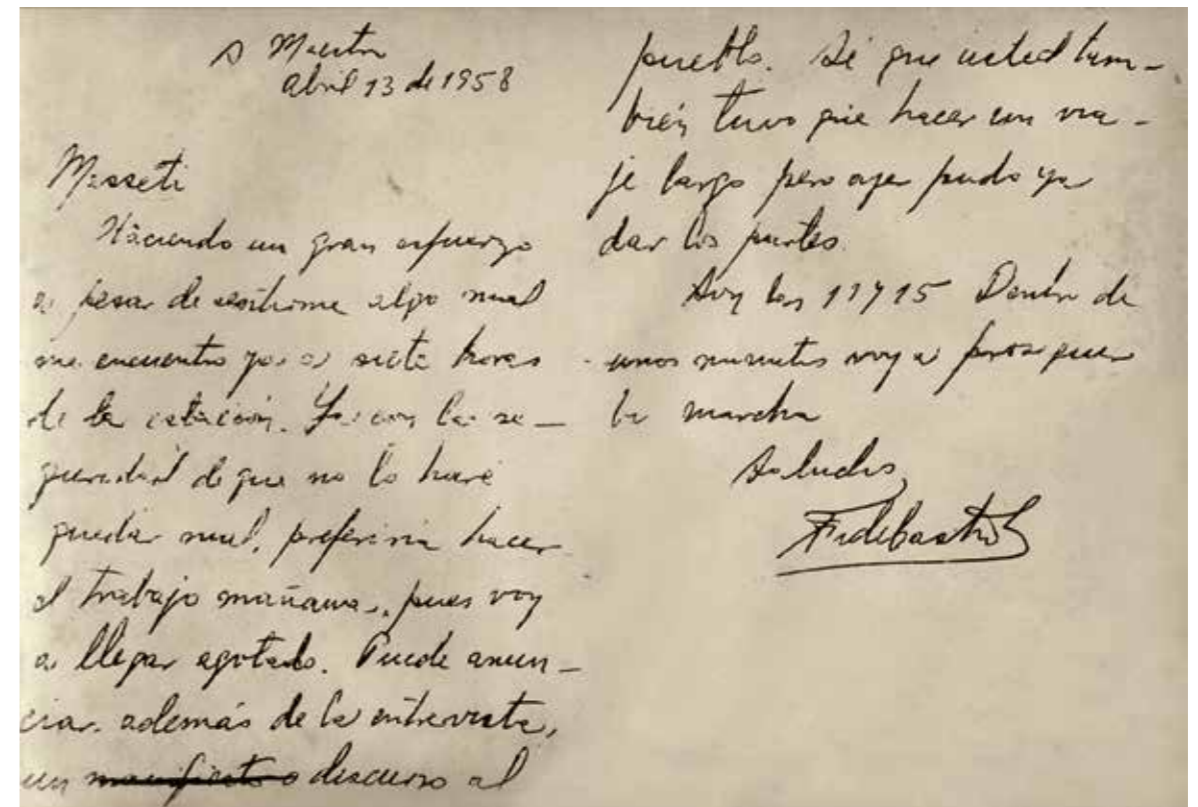 S Maestra
Abril 13 de 1958
Masseti
Haciendo un gran esfuerzo
a pesar de sentirme algo mal
me encuentro ya a siete horas
de la estación. Ya con la se-
guridad de que no lo haré
quedar mal, preferiría hacer
el trabajo mañana, pues voy
a llegar agotado. Puede anun-
ciar, además de la entrevista,
un manifiesto o discurso al
pueblo. Sé que usted tam-
bién tuvo que hacer un via-
je largo pero ayer pudo ya
dar los partes.
Son las 11 y 15 Dentro de
unos minutos voy a proseguir
la marcha
Saludos,
Fidel Castro